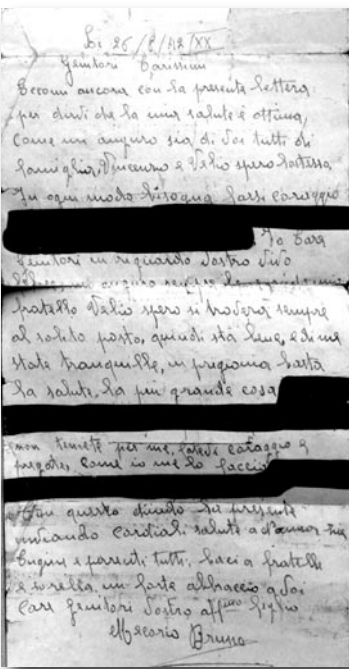 Li 26/8/42/XX
Genitori Carissimi
Eccomi ancora con la presente lettera
per dirvi che la mia salute è ottima,
Come mi auguro sia di voi tutti di
famiglia, Vincenzo e Velio spero lo stessa
In ogni modo bisogna farsi coraggio
Io Care
Genitori in riguardo vostro
mi auguro
fratello Velio spero si troverà sempre
al solito posto, quindi sta bene, e di me
state tranquille, in prigionia basta
la salute, la più grande cosa
non temete per me, fatevi coraggio e
pregate, come io me lo faccio
Con questo chiudo la presente
inviando cordiali saluti a
Cugini e parenti tutti, baci a fratelli
e sorella, un forte abbraccio a voi
Care Genitori Vostro aff.mo figlio
Mecario Bruno